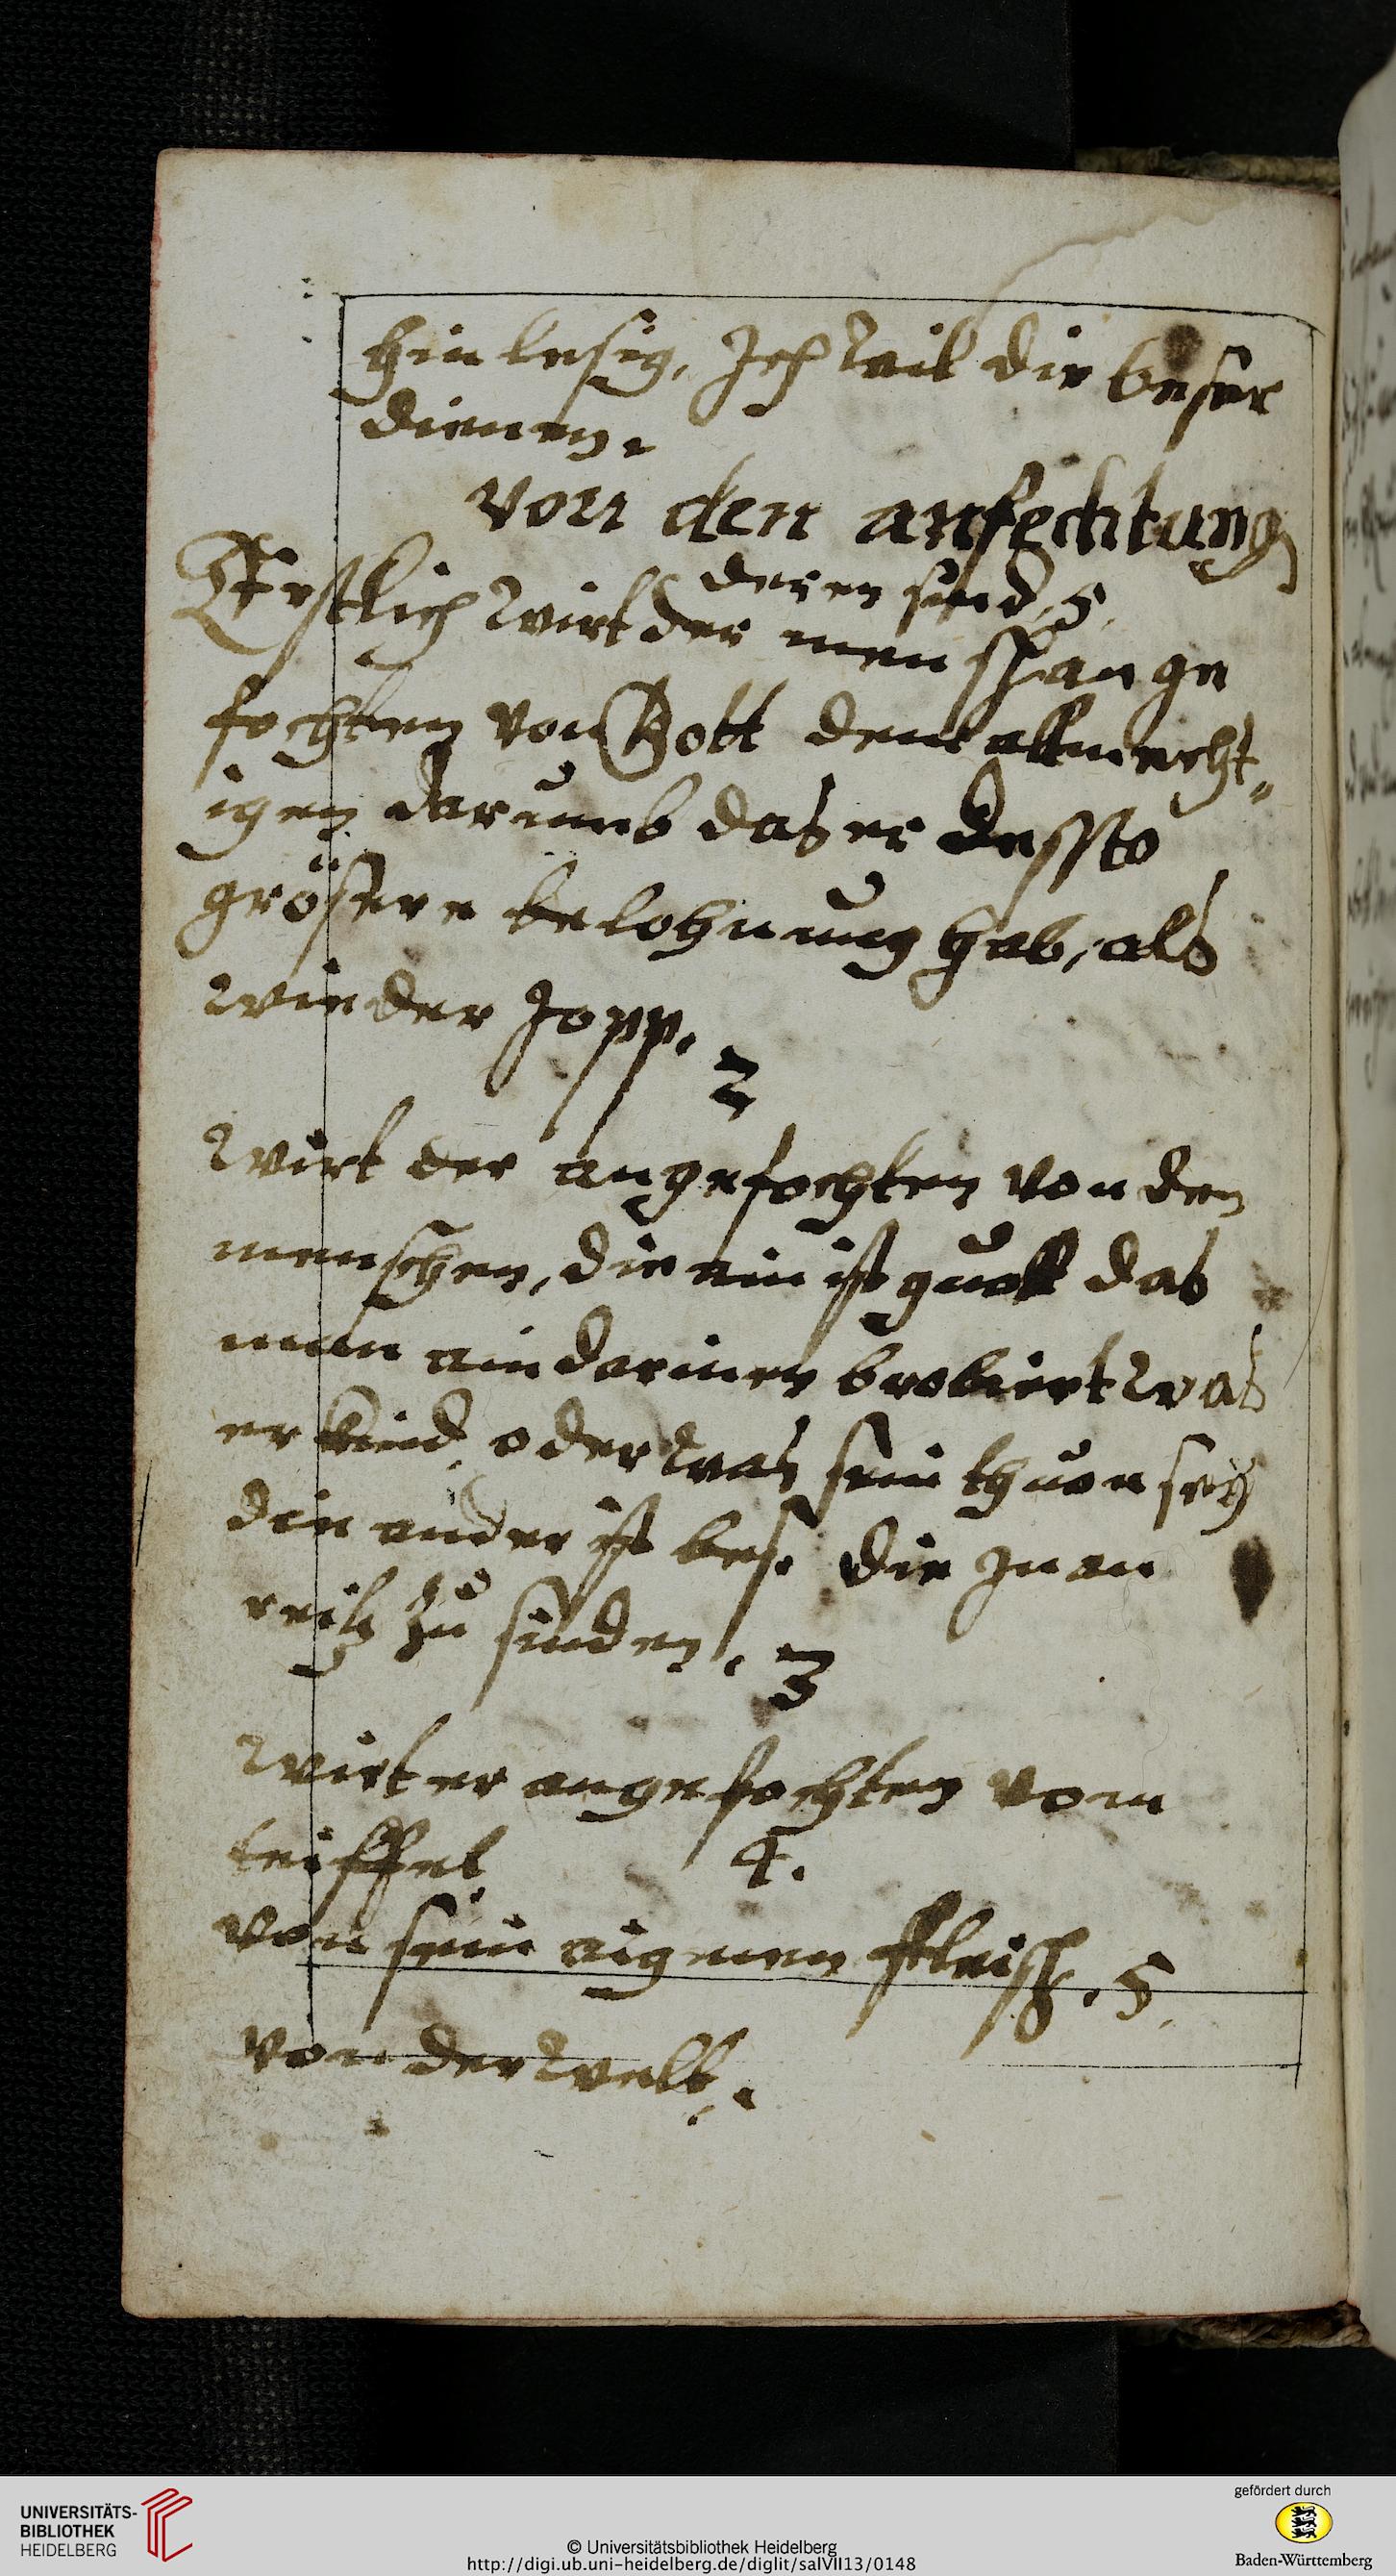 hin lesig, Ich wil dir beser
dienen.
von den anfechtung
deren sind, 5,
Erstlich wirt der mensch ange
fochten von Gott dem allmecht„
igen darumb das er dessto
grösere belohnung hab, als
wie der Jopp.
2
wirt der angefochten von den
menschen, die ein ist guott das
man ein darinen brobiert was
er kind, oder was sein thuon sey
die ander ist bess die Inen
reitz zu sinden.
3
wirt er angefochten vom
teiffel
4.
von sein aignen fleisch. 5,
von der welt.
UNIVERSITÄTS-
BIBLIOTHEK
HEIDELBERG
© Universitätsbibliothek Heidelberg
http://digi.ub.uni-heidelberg.de/diglit/salVII13/0148
gefördert durch
Baden-Württemberg